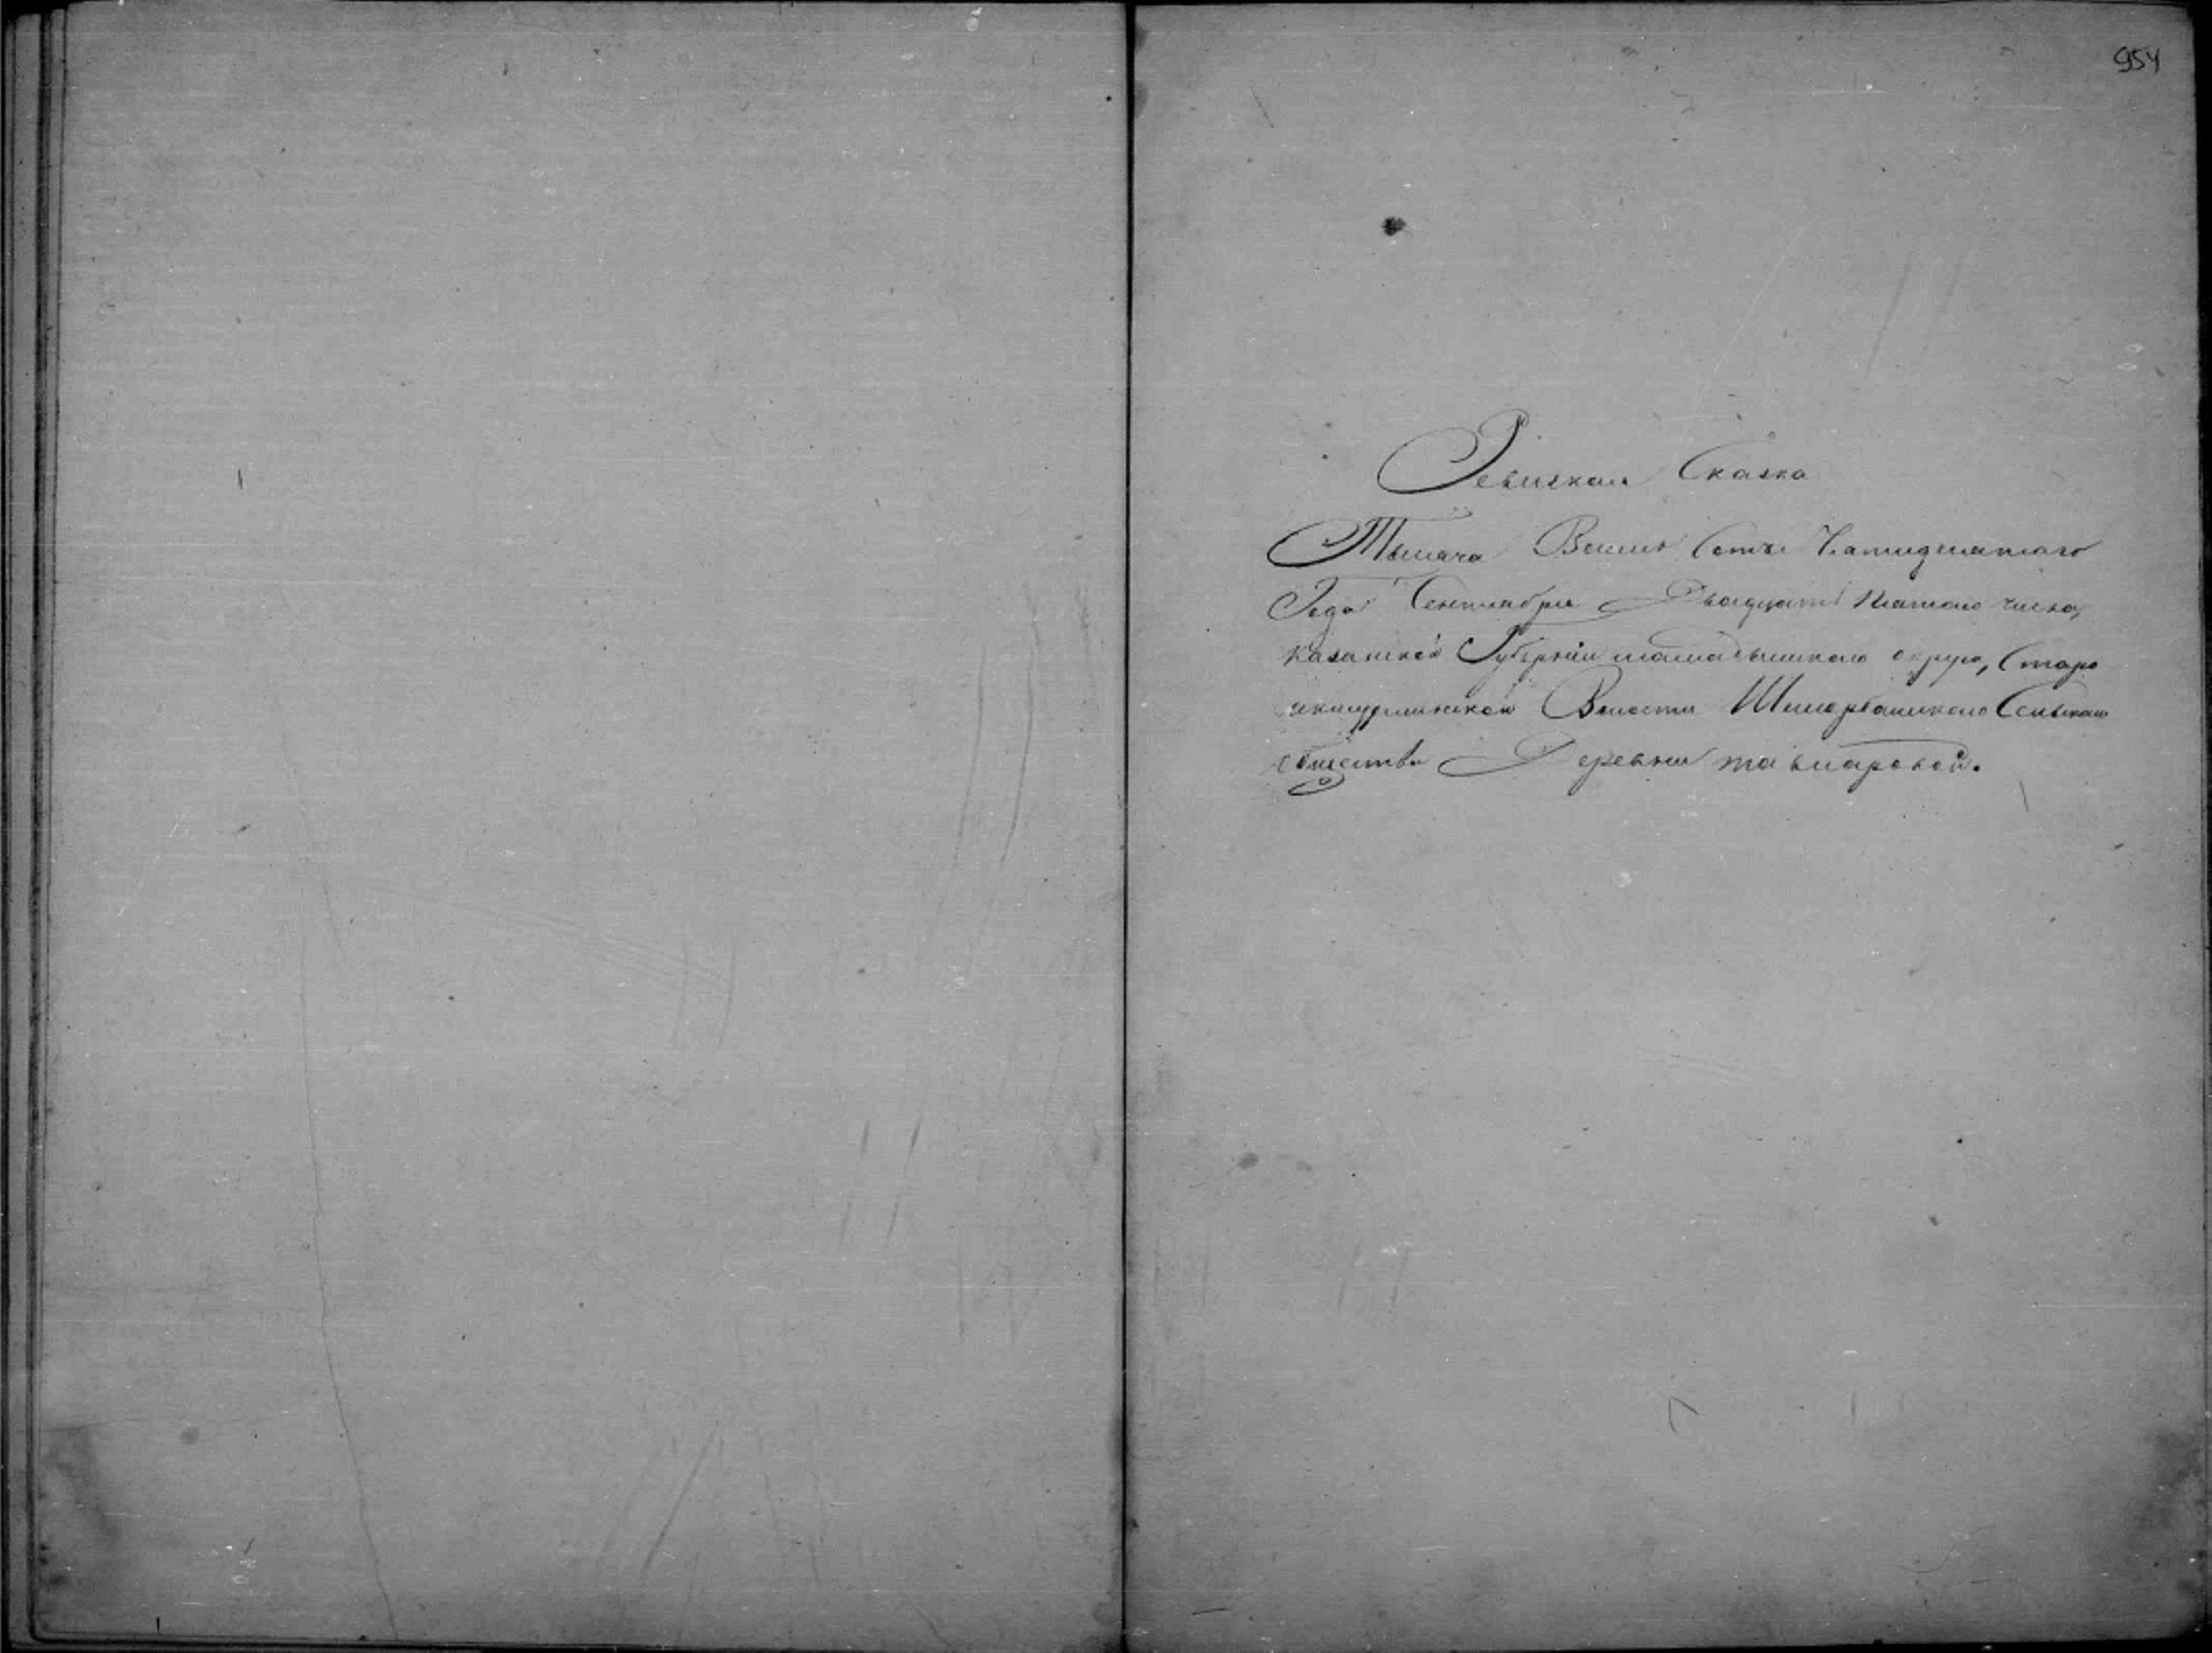 954
Ревизская Сказка
Тысяча Восемь Сотъ Пятидесятаго
Года Сентября Двадцать Пятаго числа,
казанской Губернiи мамадышскаго округа, Старо
икшурминской Волости Шеморбашскаго Сельскаго
общества Деревни тавларовой.